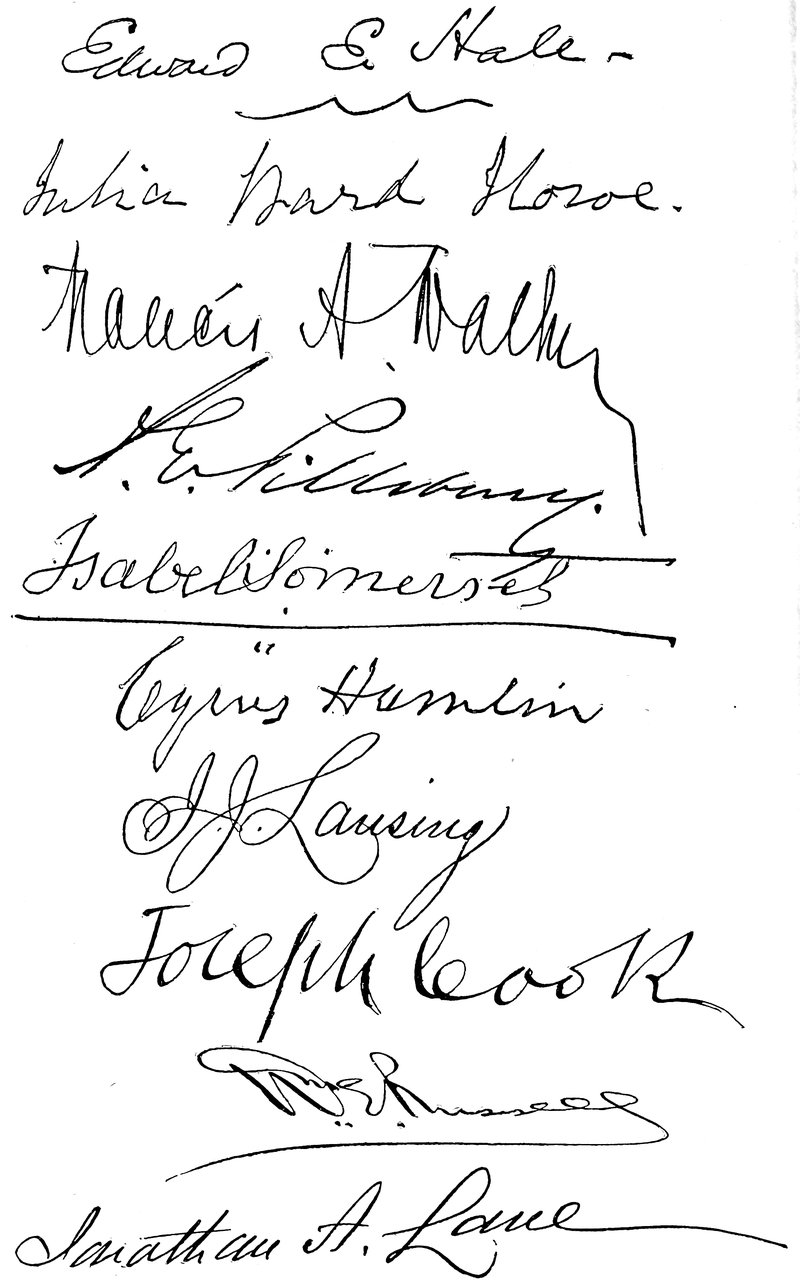 Edward E. Hale
Julia Ward Howe.
Francis A. Walker
A. E. Pillsbury.
Isabel Somerset
Cyrus Hamlin
I. J. Lansing
Joseph Cook
W. E. Russell
Jonathan A. Lane